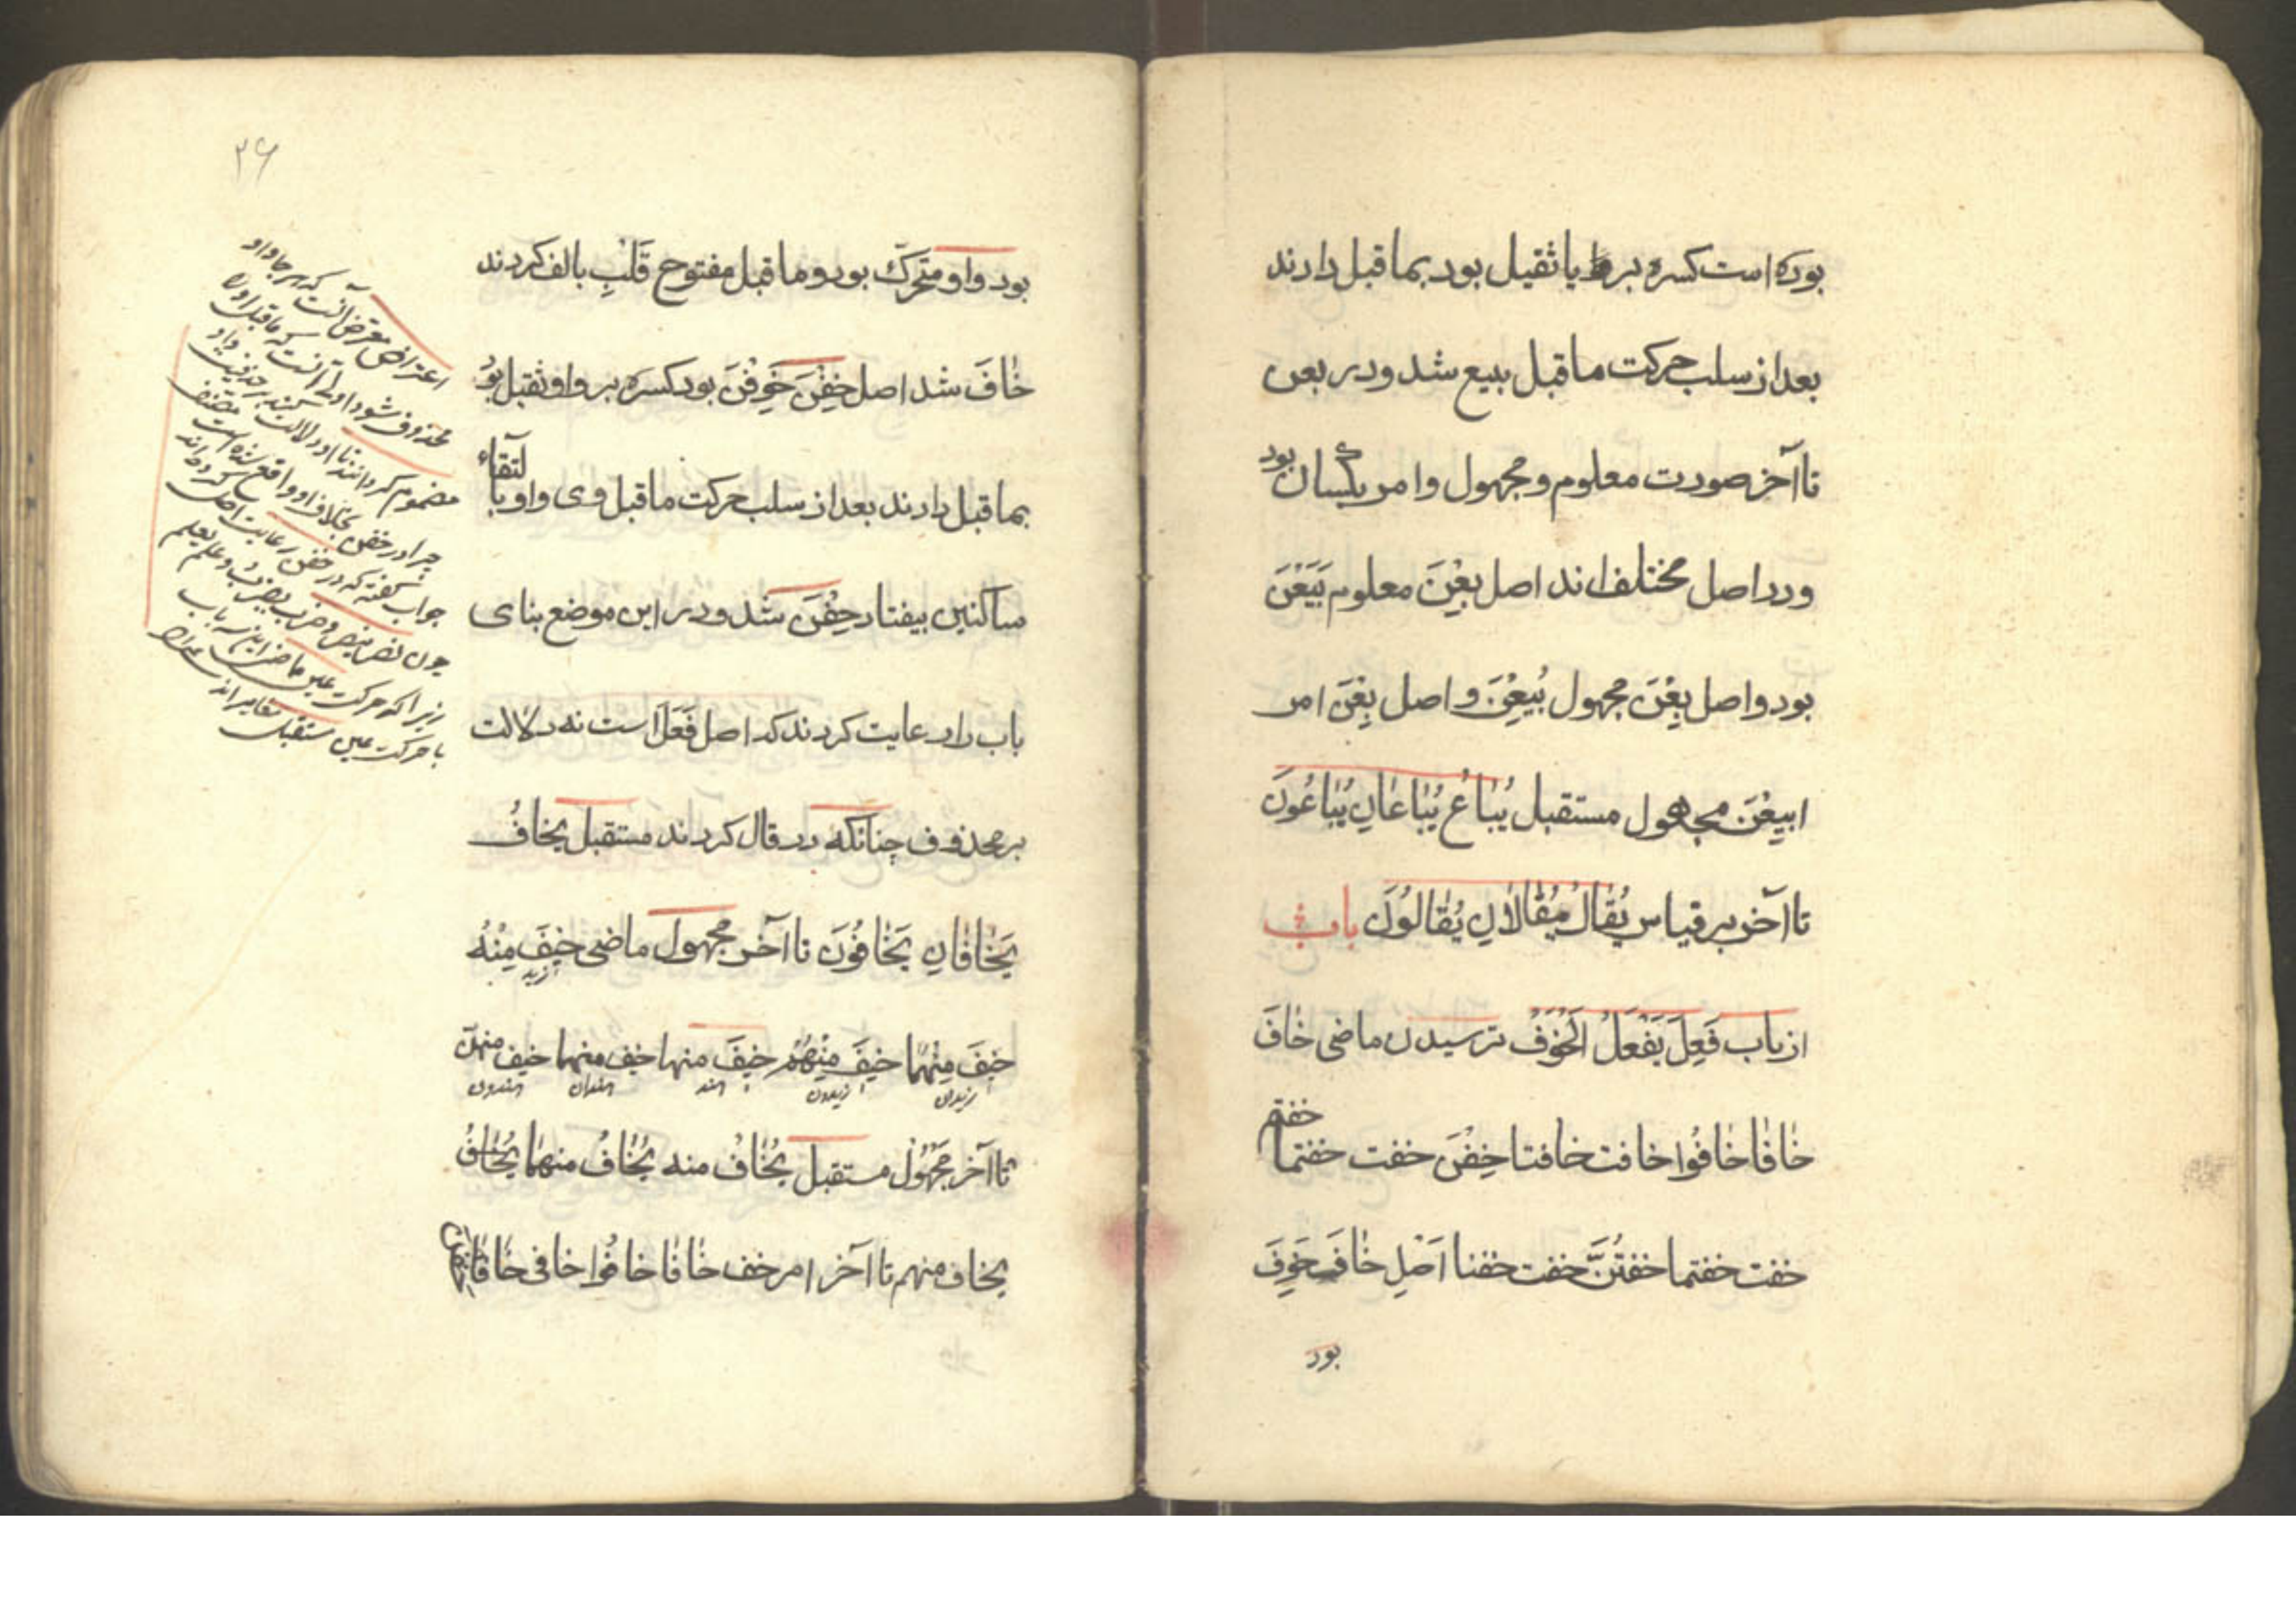 بوده است کسره بر یا ثقیل بود بماقبل دادند
بعد از سلب حرکت ماقبل بیع شد و در بعن
تا آخر صورت معلوم و مجهول و امر یکسان بود
و در اصل مختلف اند اصل بِعْنَ معلوم بَیَعْنَ
بود و اصل بِعْنَ مجهول بُیِعْنَ و اصل بِعْنَ امر
ابیِعْنَ مجهول مستقبل یُبٰاعُ یُبٰاعٰانِ یُبٰاعُونَ
تا آخر بر قیاس یُقٰالُ یُقٰالاٰنِ یُقٰالُونَ باب
از باب فَعِلَ یَفْعَلُ اَلْخَوْفُ ترسیدن ماضی خٰافَ
خٰافٰا خٰافُوا خافت خافتا خِفْنَ خفت خفتما خفتم
خفت خفتما خفتُنَّ خفت خفنا اَصْلِ خٰافَ خَوِفَ
بود
۲۶
بود واو متحرّک بود و ماقبل مفتوح قَلْبِ بالف کردند
خٰافَ شد اصل خِفْنَ خَوِفْنَ بود کسره بر واو ثقیل بود
بماقبل دادند بعد از سلب حرکت ماقبل وی واو بالتقاء
ساکنین بیفتاد خِفْنَ شد و در این موضع بنای
باب را رعایت کردند که اصل فَعِلَ است نه دلالت
بر محذوف چنانکه در قال کردند مستقبل یخافُ
یَخٰافٰانِ یَخٰافُونَ تا آخر مجهول ماضی خیفَ مِنْهُ
زید
خیفَ مِنْهُمٰا خیفَ مِنْهُمْ خیفَ منها خیف منهما خیف منهنّ
زیدان زیدون هند هندان
تا آخر مَجْهُول مستقبل یُخٰافُ منه یُخٰافُ منهمٰا یُخٰافُ
یخاف منهم تا آخر امر خف خٰافٰا خافُوا خافی خٰافٰا
اعتراض معترض آنست که هر جا واو
محذوف شود اولی آنست که ماقبل او را
مضموم گردانند تا او دلالت کند بر حذفیت واو
چرا در خفن بخلاف او واقع شده است مصنف
جواب گفته که در خفن رعایت اصل کرده اند
چون نصر ینصر و ضرب یضرب و علم یعلم
زیرا که حرکت عین ماضی این سه باب
با حرکت عین مستقبل مغایر اند